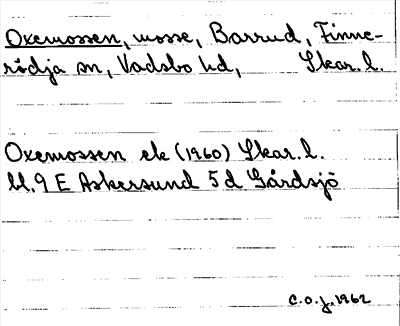 Oxemossen, mosse, Barrud, Finne-
rödja sn, Vadsbo hd, Skar. l.
Oxemossen ek (1960) Skar. l.
bl. 9 E Askersund 5 d Gårdsjö
C.O.J. 1962